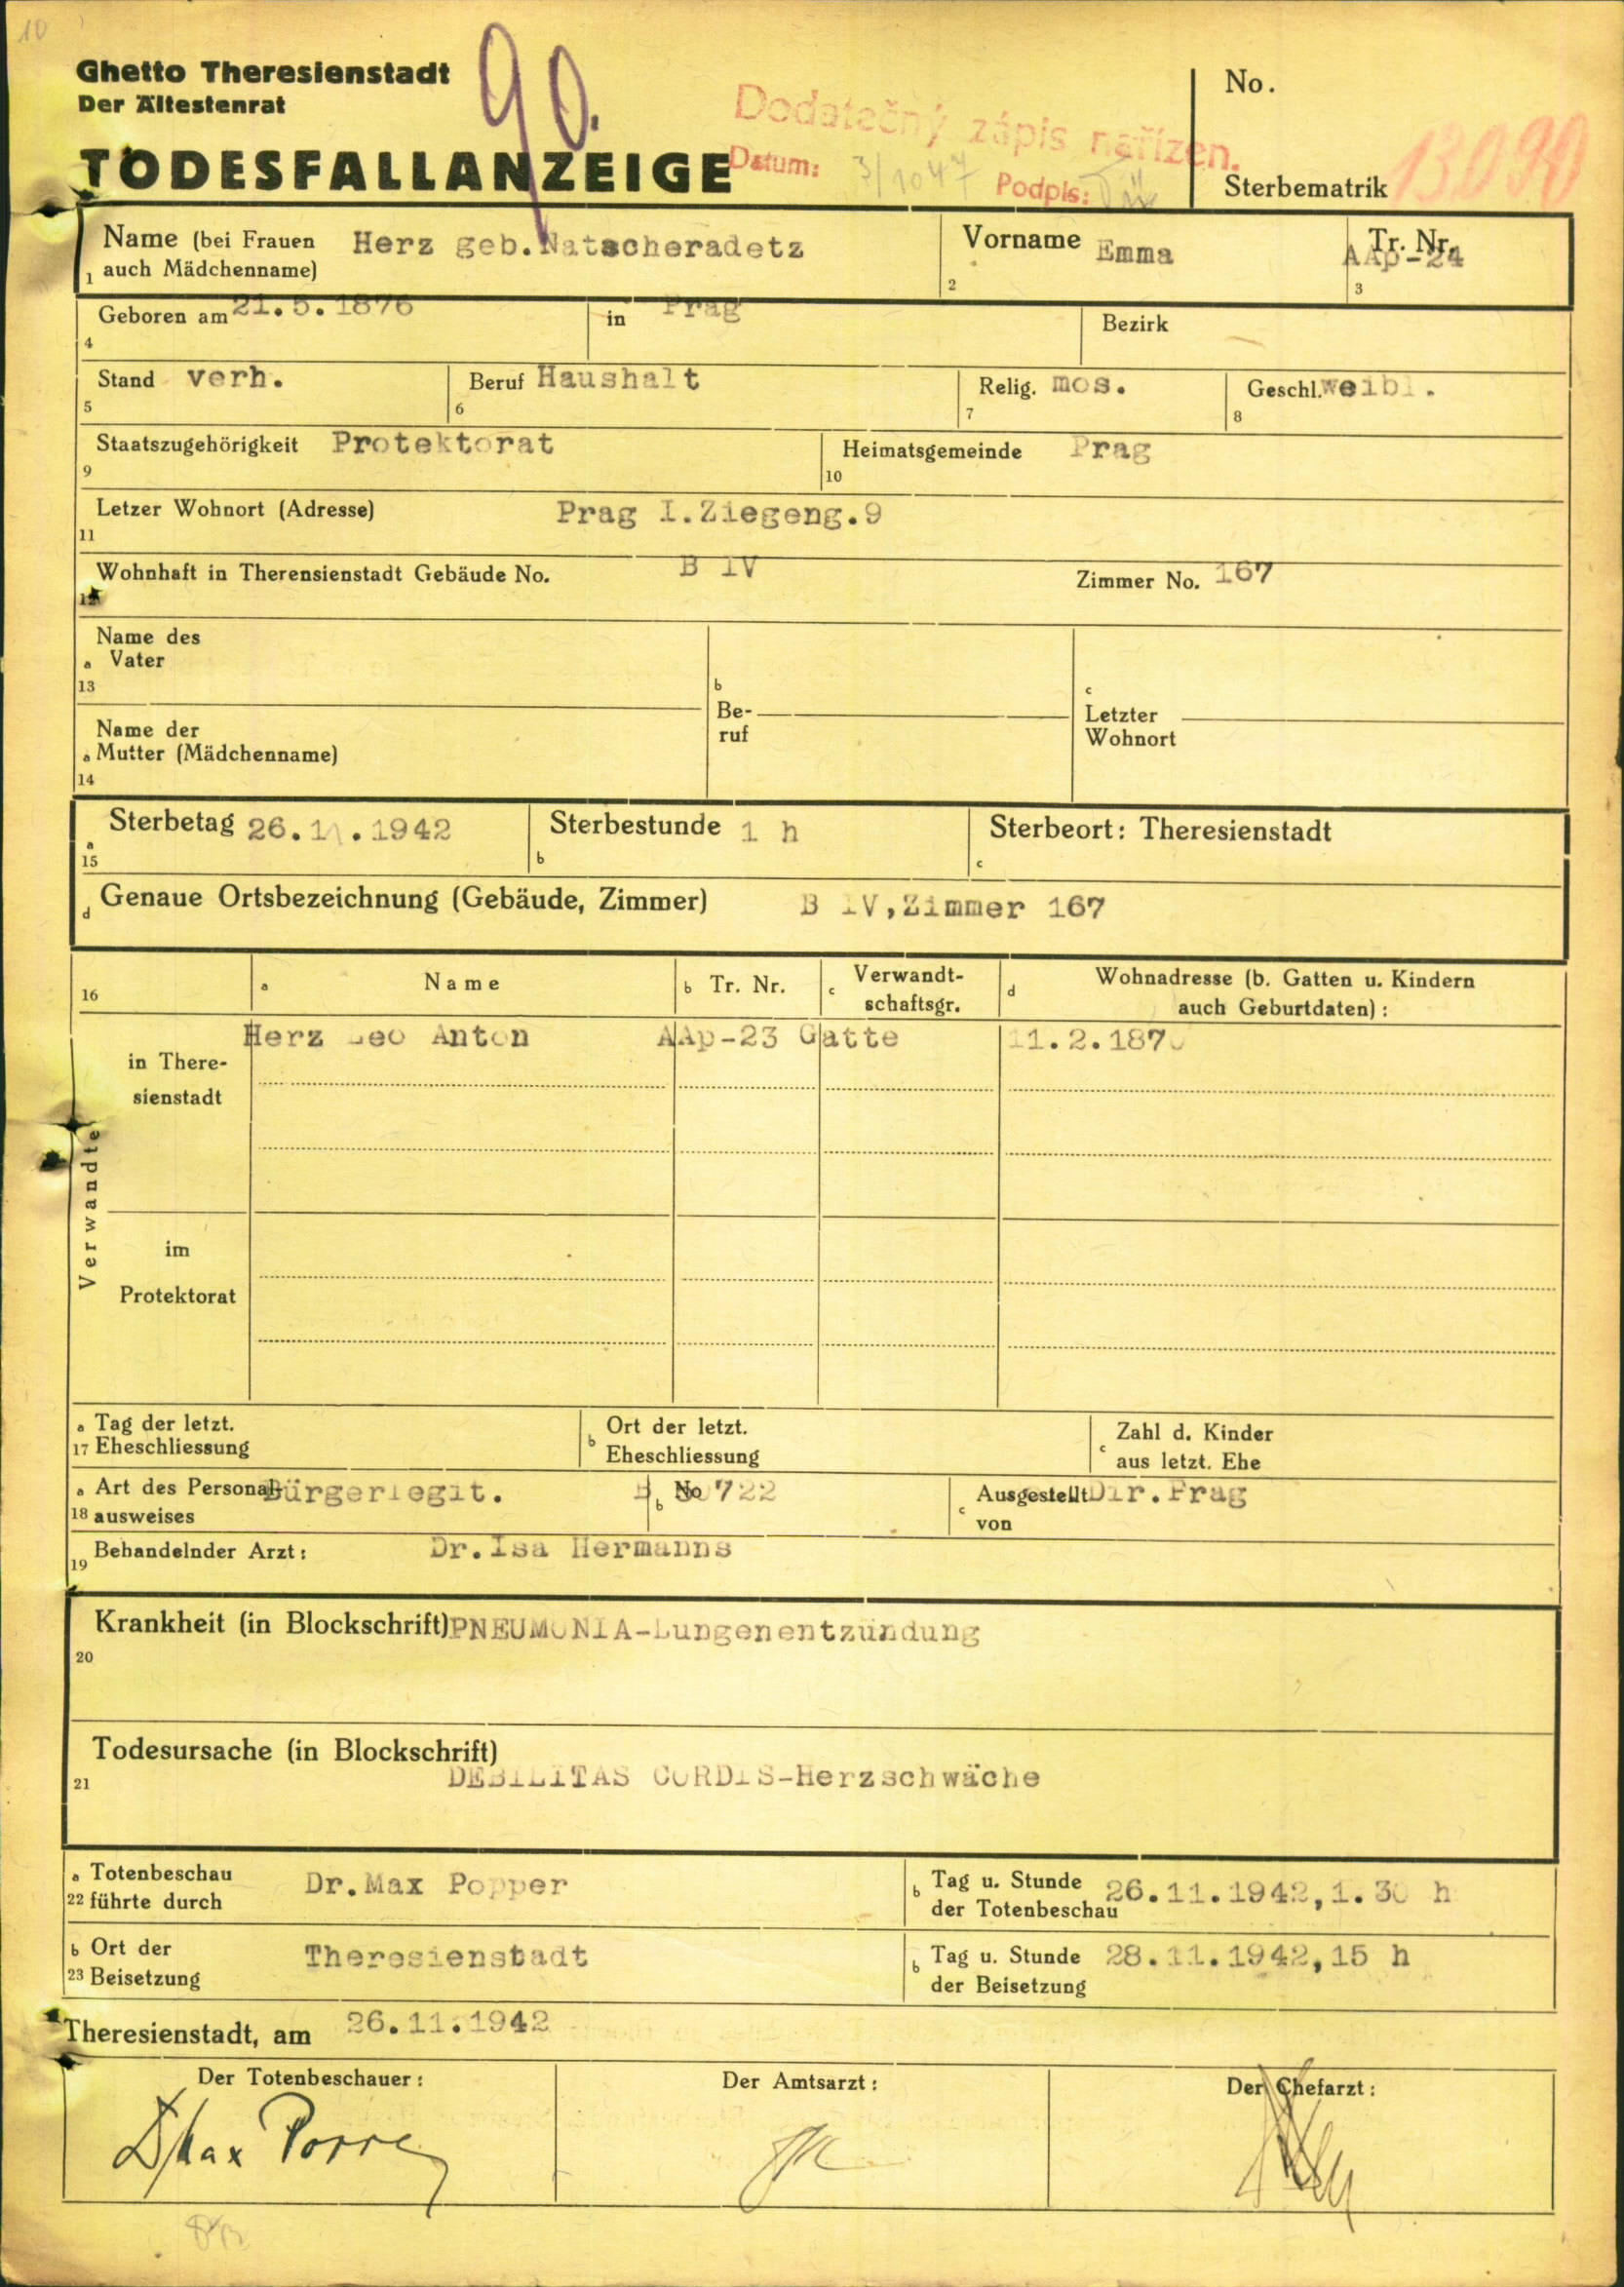 10
Ghetto Theresienstadt
Der Ältestenrat
90.
TODESFALLANZEIGE
Dodatečný zápis nařízen.
Datum: 3/1047 Podpis:
No.
Sterbematrik 13090
Name (bei Frauen auch Mädchenname) Herz geb.Natscheradetz
1
Vorname Emma
2
Tr. Nr. AAp-24
3
Geboren am 21.5.1876
4
in Prag
Bezirk
Stand verh.
5
Beruf Haushalt
6
Relig. mos.
7
Geschl. weibl.
8
Staatszugehörigkeit Protektorat
9
Heimatsgemeinde Prag
10
Letzer Wohnort (Adresse) Prag I.Ziegeng.9
11
Wohnhaft in Therensienstadt Gebäude No. B IV
Zimmer No. 167
12
Name des
a Vater
13
Name der
a Mutter (Mädchenname)
14
b
Be-
ruf
c
Letzter
Wohnort
Sterbetag 26.11.1942
a
15
Sterbestunde 1 h
b
Sterbeort: Theresienstadt
c
d Genaue Ortsbezeichnung (Gebäude, Zimmer) B IV,Zimmer 167
16
a Name
b Tr. Nr.
c Verwandt-
schaftsgr.
d Wohnadresse (b. Gatten u. Kindern
auch Geburtdaten) :
Verwandte
in There-
sienstadt
Herz Leo Anton AAp-23 Gatte 11.2.1870
im
Protektorat
a Tag der letzt.
17 Eheschliessung
b Ort der letzt.
Eheschliessung
c Zahl d. Kinder
aus letzt. Ehe
a Art des Personal- Bürgerlegit.
18 ausweises
b No
c Ausgestellt Dir.Prag
von
19 Behandelnder Arzt : Dr.Isa Hermanns
Krankheit (in Blockschrift) PNEUMONIA-Lungenentzündung
20
Todesursache (in Blockschrift)
21
DEBILITAS CORDIS-Herzschwäche
a Totenbeschau
22 führte durch
Dr.Max Popper
b Tag u. Stunde
der Totenbeschau
26.11.1942,1.30 h
b Ort der
23 Beisetzung
Theresienstadt
b Tag u. Stunde
der Beisetzung
28.11.1942,15 h
Theresienstadt, am 26.11.1942
Der Totenbeschauer :
Der Amtsarzt :
Der Chefarzt :